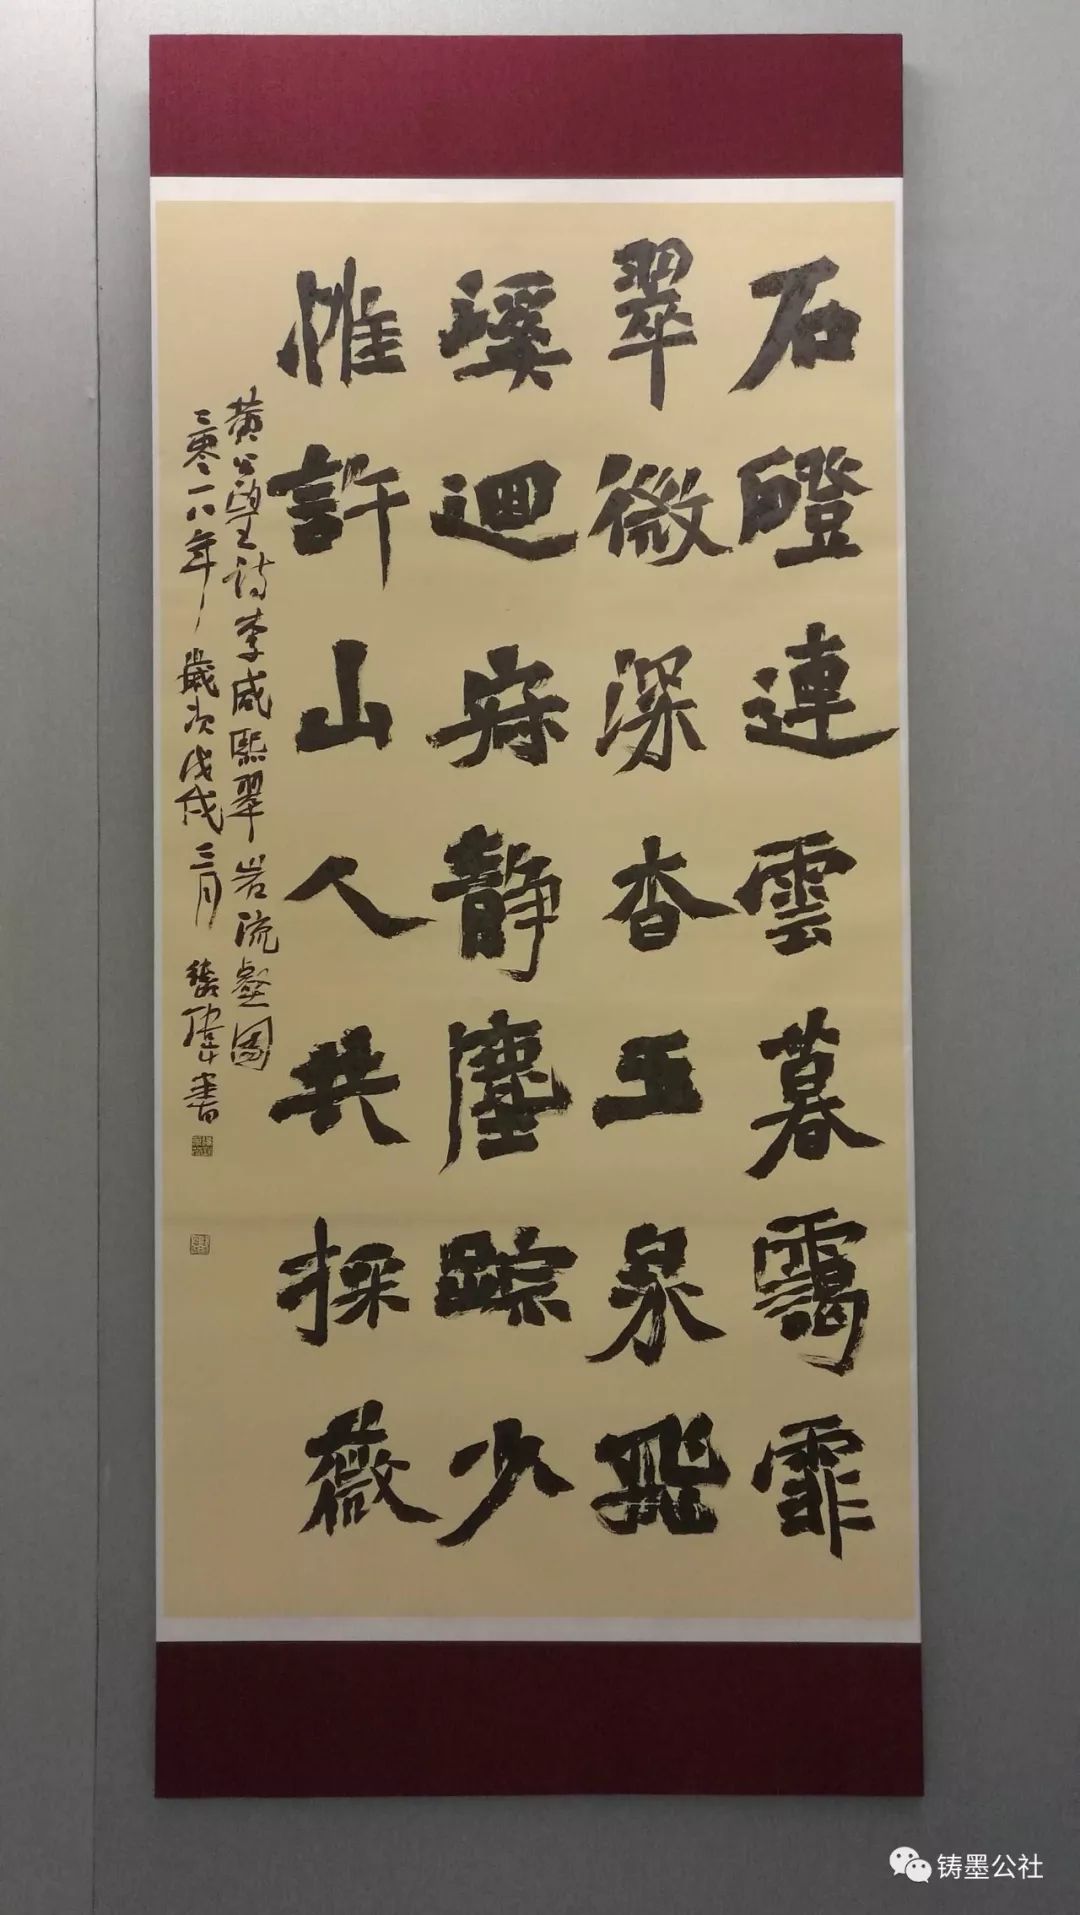 石磴連雲暮靄霏
翠微深杳玉泉飛
溪迴寂靜塵踪少
惟許山人共採薇
黄公望诗李咸熙翠岩流壑图
二零一八年歲次戊戌三月
書
铸墨公社